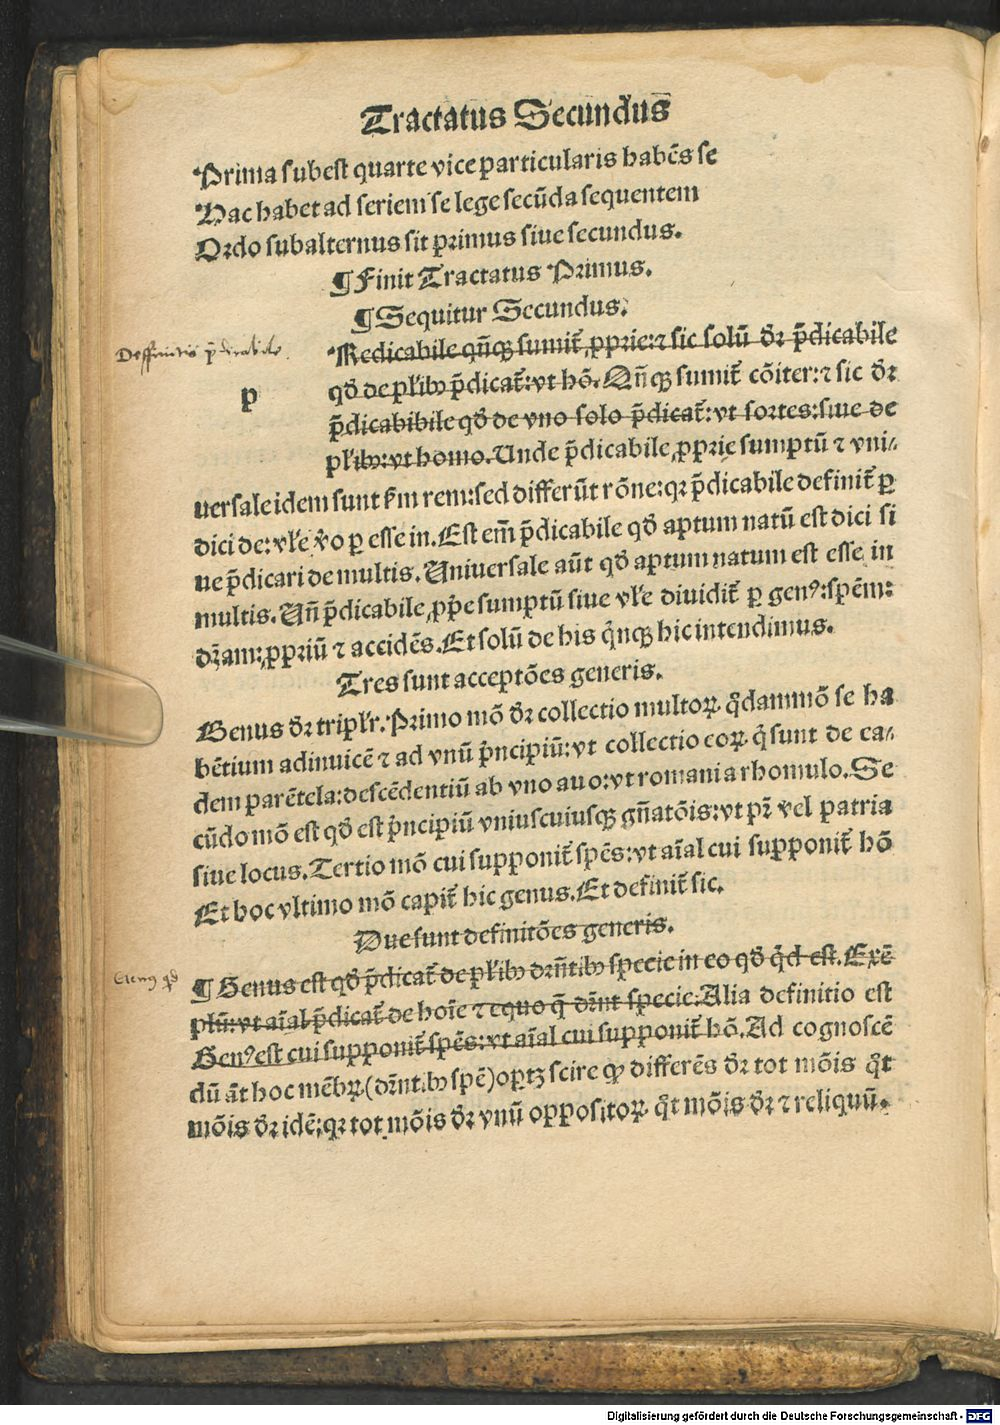 Tractatus Secundus
Prima subest quarte vice particularis habẽs se
Hac habet ad seriem se lege secũda sequentem
Ordo subalternus sit primus siue secundus.
¶ Finit Tractatus Primus.
¶ Sequitur Secundus.
Redicabile qñqꝫ sumit̃ ꝓprie: ⁊ sic solũ dr̃ p̃dicabile
p
qd̃ de pl'ibꝰ p̃dicat̃: vt hõ. Qñqꝫ sumit̃ cõiter: ⁊ sic dr̃
p̃dicabibile qd̃ de vno solo p̃dicat̃: vt sortes: siue de
pl'ibꝰ: vt homo. Unde p̃dicabile ꝓprie sumptũ ⁊ vni⸗
uersale idem sunt ẜm rem: sed differũt rõne: qꝛ p̃dicabile definit̃ ꝑ
dici de: vl'e ṽo ꝑ esse in. Est em̃ p̃dicabile qd̃ aptum natũ est dici si
ue p̃dicari de multis. Uniuersale aũt qd̃ aptum natum est esse in
multis. Uñ p̃dicabile ꝓp̃e sumptũ siue vl'e diuidit̃ ꝑ genꝰ: spẽm:
dr̃am: ꝓpriũ ⁊ accidẽs. Et solũ de his q̃nqꝫ hic intendimus.
Tres sunt acceptões generis.
Genus dr̃ tripl'r. Primo mõ dr̃ collectio multoꝝ q̃dammõ se ha
bẽtium adinuicẽ ⁊ ad vnũ p̃ncipiũ: vt collectio eoꝝ q̃ sunt de ea⸗
dem parẽtela: descẽdentiũ ab vno auo: vt romani a rhomulo. Se
cũdo mõ est qd̃ est p̃ncipiũ vniuscuiusqꝫ gñatõis: vt pr̃ vel patria
siue locus. Tertio mõ cui supponit̃ spẽs: vt aĩal cui supponit̃ hõ
Et hoc vltimo mõ capit̃ hic genus. Et definit̃ sic.
Due sunt definitões generis.
¶ Genus est qd̃ p̃dicat̃ de pl'ibꝰ drñtibꝰ specie in eo qd̃ q̃d est. Exẽ
plũ: vt aĩal p̃dicat̃ de hoĩe ⁊ equo q̃ drñt specie. Alia definitio est
Genꝰ est cui supponit̃ spẽs: vt aĩal cui supponit̃ hõ. Ad cognoscẽ
dũ ãt hoc mẽbꝝ (drñtibꝰ spẽ) oꝑtꝫ scire ꝙ differẽs dr̃ tot mõis q̃t
mõis dr̃ idẽ: qꝛ tot mõis dr̃ vnũ oppositoꝝ q̃t mõis dr̃ ⁊ reliquũ.
Digitalisierung gefördert durch die Deutsche Forschungsgemeinschaft - DFG